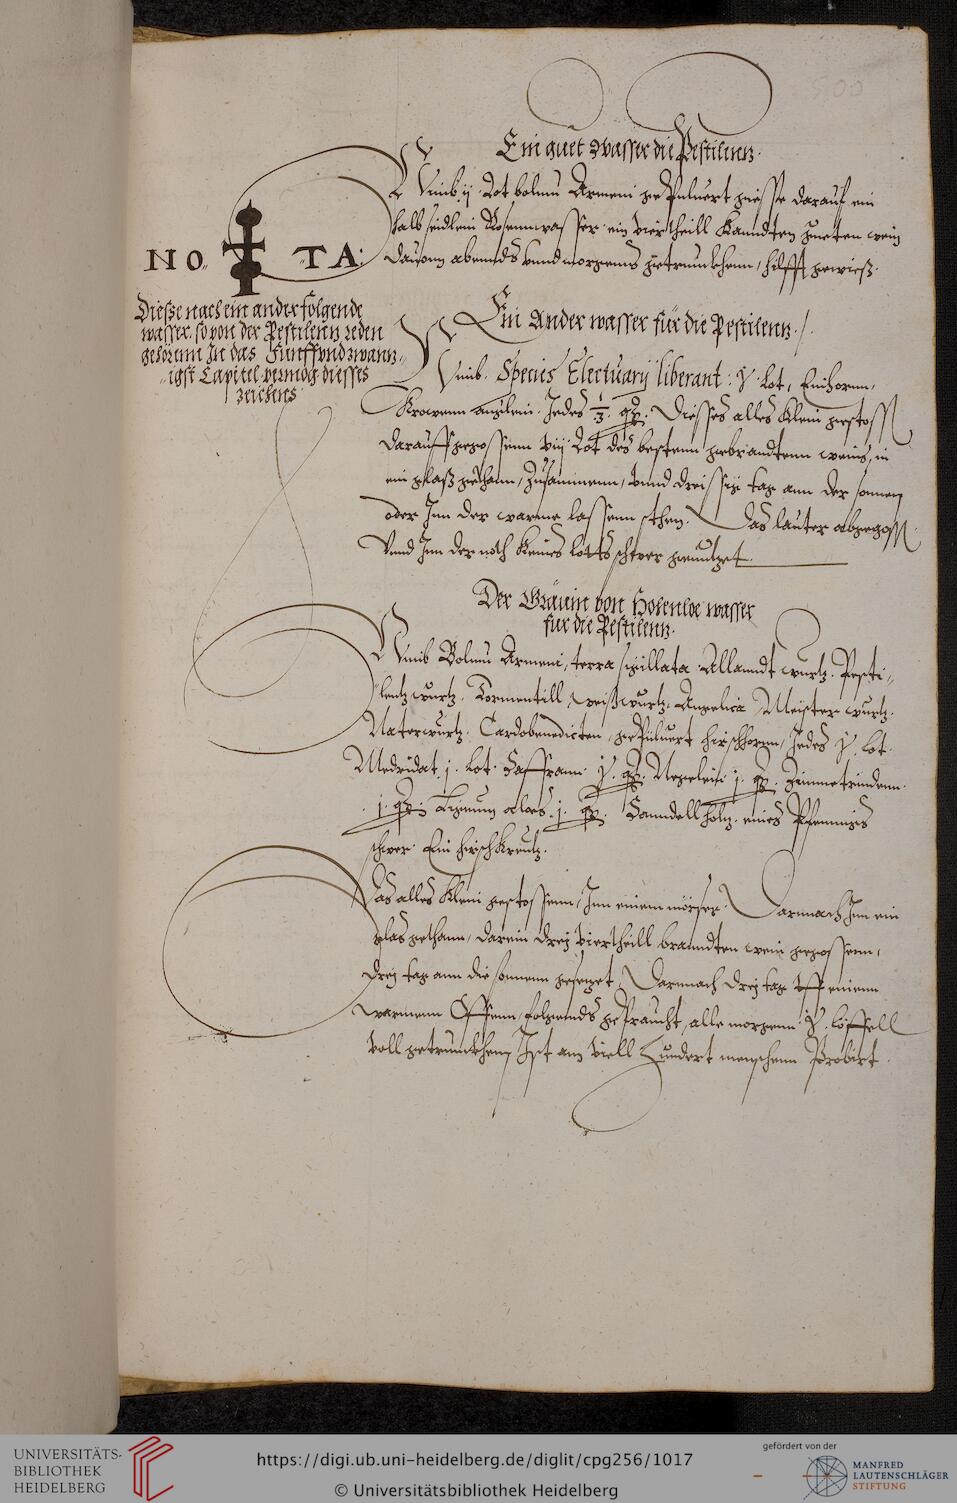 500
Ein guet wasser die Pestilentz.
Nimb ij Lot bolmu Armeni gePuluert giesse darauf ein
halb seidlein Rosennwasser ein viertheill Kanndten gueten wein
Dauonn abennds vnnd morgenns getrunckhenn, hilfft gewiess.
NO TA:
Diesze nach ein ander folgende
wasser, so von der Pestilentz reden
gehörenn In das Funffvndzwann-
zigst Capitel vermög diesses
zeichens
Ein Ander wasser für die Pestilentz.
Nimb Species Electuarij liberant: Lot, Einhornn,
Jedes Diesses alles Klein gestoss
darauff gegossenn viij Lot des bestenn gebrandtenn weins, in
ein glass gethann, Zusammenn, vnnd dreissig tag ann der sonnen
oder Inn der warme lassenn sthen. Das lauter abgegoss
Vnnd Inn der noth Keines Lotts schwer genutzet
Der Gräuin von Holenloe wasser
für die Pestilentz.
Nimb Bolmu Armeni, terra sigillata Allanndt wurtz. Pesti-
lentz wurtz. Tormentill, weisswurtz. Angelica Meister wurtz.
Naterwurtz. Cardobenedicten, gePuluert hirschhornn, Jedes Lot
Medridat j. Lot. Saffrann Negelein j. Zimmetrindenn.
j. Lignum aloes. j. Sanndellholtz. eines Pfennings
schwer. Ein hirsch Kreutz.
Das alles Klein gestossenn, Inn einem mörser. Darnnach Inn ein
glas gethann, darein dreij viertheill branndten wein gegossenn,
dreij tag ann die sonnenn gesetzet, Darnnach dreij tag vff einenn
warmenn Offenn, folgennds gePraucht, alle morgenn löffell
voll getrunckhenn, Ist ann viell Hundert menschenn Probirt.
UNIVERSITÄTS-
BIBLIOTHEK
HEIDELBERG
https://digi.ub.uni-heidelberg.de/diglit/cpg256/1017
© Universitätsbibliothek Heidelberg
gefördert von der
MANFRED
LAUTENSCHLÄGER
STIFTUNG